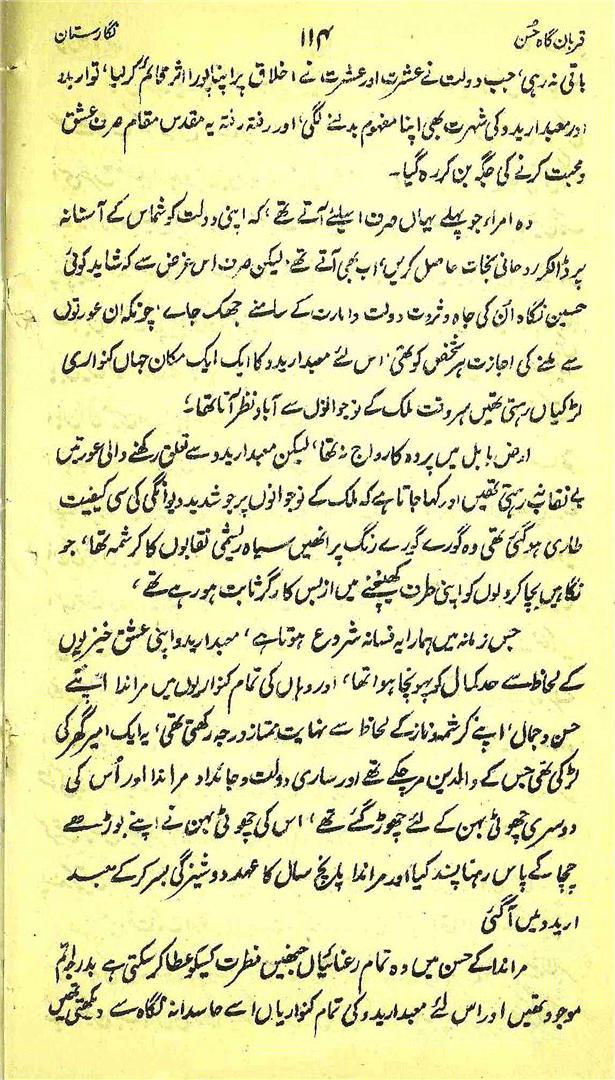 قربان گاہ حُسن
۱۱۴
نگارستان
باقی نہ رہی، جب دولت نے عشرت اور عشرت نے اخلاق پر اپنا پورا اثر قائم کر لیا، تو اریدو
اور معبد اریدو کی شہرت بھی اپنا مفہوم بدلنے لگی، اور رفتہ رفتہ یہ مقدس مقام صرف عشق
و محبت کرنے کی جگہ بن کر رہ گیا۔
وہ امراء جو پہلے یہاں صرف اسلئے آتے تھے، کہ اپنی دولت کو شماس کے آستانہ
پر ڈالکر روحانی نجات حاصل کریں، اب بھی آتے تھے، لیکن صرف اس غرض سے کہ شاید کوئی
حسین نگاہ اُن کی جاہ و ثروت دولت و امارت کے سامنے جھک جائے، چونکہ ان عورتوں
سے ملنے کی اجازت ہر شخص کو تھی، اس لئے معبد اریدو کا ایک ایک مکان جہاں کنواری
لڑکیاں رہتی تھیں ہر وقت ملک کے نوجوانوں سے آباد نظر آتا تھا۔
ارض بابل میں پردہ کا رواج نہ تھا، لیکن معبد اریدو سے تعلق رکھنے والی عورتیں
بے نقاب رہتی تھیں اور کہا جاتا ہے کہ ملک کے نوجوانوں پر جو شدید دیوانگی کی سی کیفیت
طاری ہو گئی تھی وہ گورے گورے رنگ پر انھیں سیاہ ریشمی نقابوں کا کرشمہ تھا، جو
نگاہیں بچا کر دلوں کو اپنی طرف کھینچنے میں ازبس کارگر ثابت ہو رہے تھے،
جس زمانہ میں ہمارا یہ فسانہ شروع ہوتا ہے، معبد اریدو اپنی عشق خیزیوں
کے لحاظ سے حد کمال کو پہونچا ہوا تھا، اور وہاں کی تمام کنواریوں میں مراندا اپنے
حسن و جمال، اپنے کرشمہ و ناز کے لحاظ سے نہایت ممتاز درجہ رکھتی تھی، یہ ایک امیر گھر کی
لڑکی تھی جس کے والدین مر چکے تھے اور ساری دولت و جائداد مراندا اور اُس کی
دوسری چھوٹی بہن کے لئے چھوڑ گئے تھے، اس کی چھوٹی بہن نے اپنے بوڑھے
چچا کے پاس رہنا پسند کیا اور مراندا پانچ سال کا عہد دوشیزگی بسر کرکے معبد
اریدو میں آ گئی
مراندا کے حسن میں وہ تمام رعنائیاں جنھیں فطرت کسیکو عطا کر سکتی ہے بدرجہ اتم
موجود تھیں اور اس لئے معبد اریدو کی تمام کنواریاں اسے حاسدانہ نگاہ سے دیکھتی تھیں